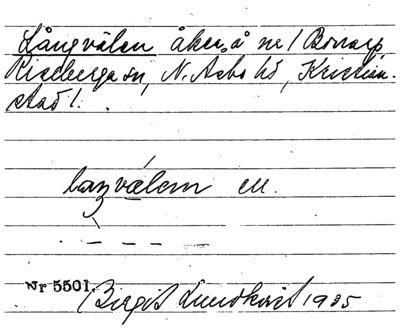 Långvålen åker å nr 1 Bonarp
Riseberga sn, N. Åsbo hd, Kristian-
stad l.
laŋvålen ell.
- - - -
Nr 5501. Birgit Lundkvist 1935